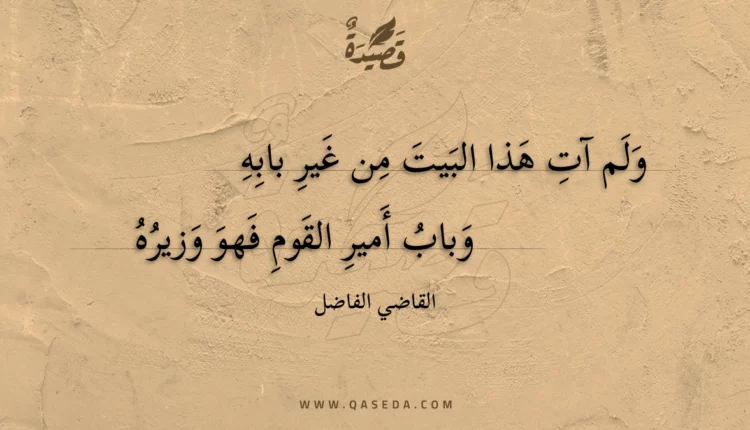 قَصِيدَةٌ
وَلَم آتِ هَذا البَيتَ مِن غَيرِ بابِهِ
وَبابُ أَميرِ القَومِ فَهوَ وَزيرُهُ
القاضي الفاضل
WWW.QASEDA.COM